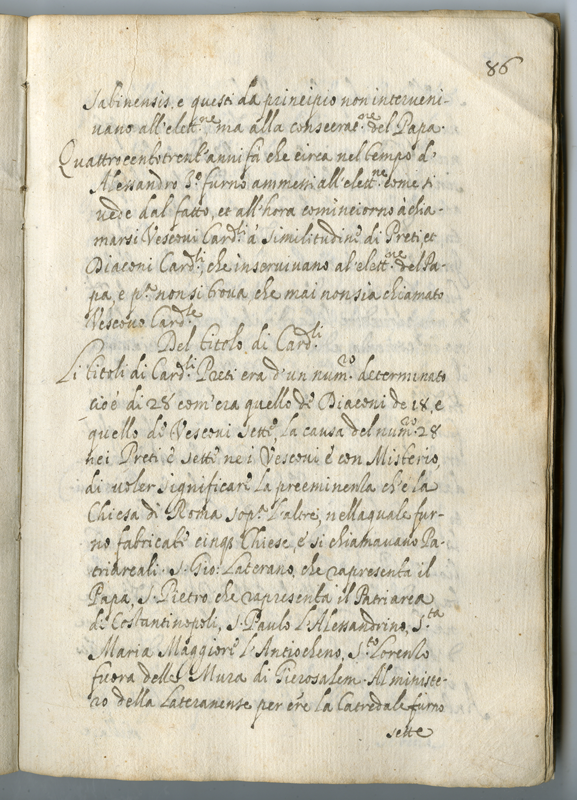 86
Sabinensis, e questi da principio non interveni-
vano all'elett.ne, ma alla consecrac.ne del Papa.
Quattrocentotrent'anni fà che circa nel tempo d'
Alessandro 3.° furno ammessi all'elett.ne come si
vede dal fatto, et all'hora cominciorno à chia-
marsi Vescovi Card.li à similitudine di Preti et
Diaconi Card.li, che inservivano al elett.ne del Pa-
pa, e p.a non si trova, che mai non sia chiamato
Vescovo Card.le
Del titolo di Card.li
Li titoli di Card.li Preti era d'un num.ro determinato
cioè di 28 com'era quello de Diaconi de 18, e
quello de Vescovi sette, la causa del num.ro 28
nei Preti e sette nei Vescovi è con Misterio,
di voler significare la preeminenza ch'è la
Chiesa di Roma sop.a l'altre, nella quale fur-
no fabricate cinq; Chiese, e si chiamavano Pa-
triarcali. S. Gio: Laterano, che rapresenta il
Papa, S. Pietro, che rapresenta il Patriarca
di Costantinopoli, S. Paulo l'Alessandrino, S.ta
Maria Maggiore l'Antiocheno, S.to Lorenzo
fuora delle Mura di Gierosalem. Al ministe-
ro della Lateranense per ere la Catredale furno
sette